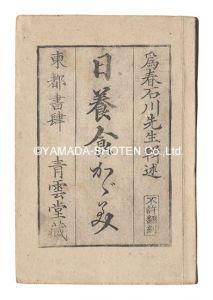 為春石川先生口述
不許翻刻
日養食かゞみ
東都書肆 青雲堂藏
©YAMADA-SHOTEN CO.,Ltd.